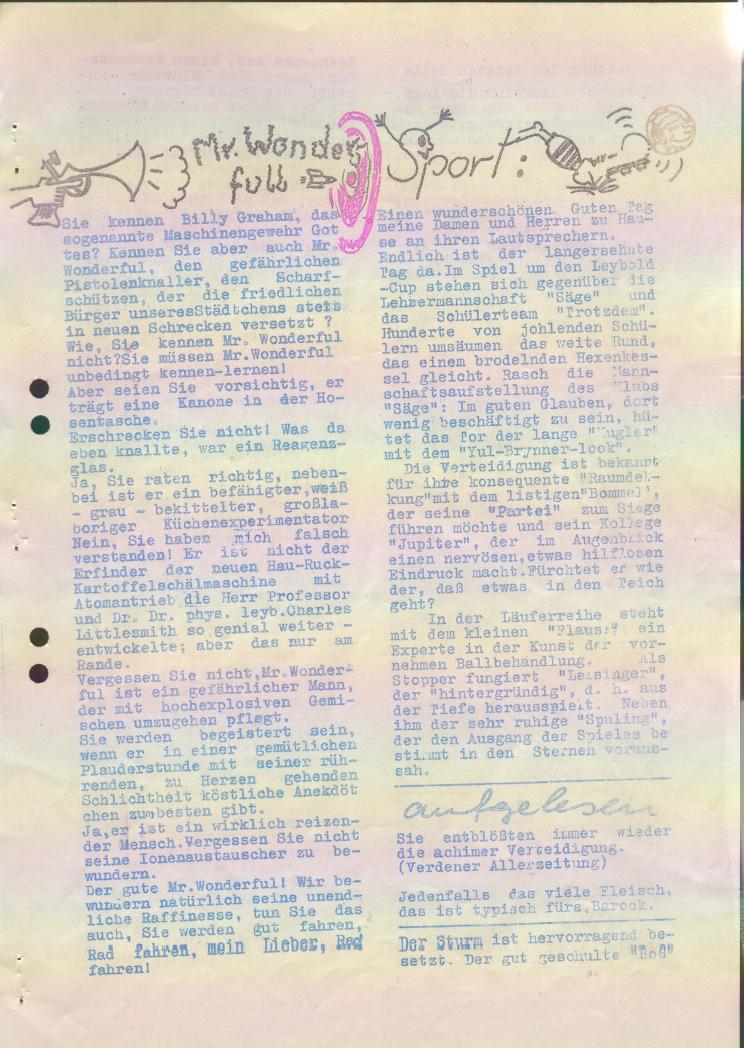 Mr. Wonder
full
Sie kennen Billy Graham, das
sogenannte Maschinengewehr Got
tes? Kennen Sie aber auch Mr.
Wonderful, den gefährlichen
Pistolenknaller, den Scharf-
schützen, der die friedlichen
Bürger unseresStädtchens stets
in neuen Schrecken versetzt ?
Wie, Sie kennen Mr. Wonderful
nicht?Sie müssen Mr.Wonderful
unbedingt kennen-lernen!
Aber seien Sie vorsichtig, er
trägt eine Kanone in der Ho-
sentasche.
Erschrecken Sie nicht! Was da
eben knallte, war ein Reagenz-
glas.
Ja, Sie raten richtig, neben-
bei ist er ein befähigter,weiß
- grau - bekittelter, großla-
boriger Küchenexperimentator
Nein, Sie haben mich falsch
verstanden! Er ist nicht der
Erfinder der neuen Hau-Ruck-
Kartoffelschälmaschine mit
Atomantrieb die Herr Professor
und Dr. Dr. phys. leyb.Charles
Littlesmith so genial weiter -
entwickelte; aber das nur am
Rande.
Vergessen Sie nicht,Mr.Wonder-
ful ist ein gefährlicher Mann,
der mit hochexplosiven Gemi-
schen umzugehen pflegt.
Sie werden begeistert sein,
wenn er in einer gemütlichen
Plauderstunde mit seiner rüh-
renden, zu Herzen gehenden
Schlichtheit köstliche Anekdöt
chen zumbesten gibt.
Ja,er ist ein wirklich reizen-
der Mensch.Vergessen Sie nicht
seine Ionenaustauscher zu be-
wundern.
Der gute Mr.Wonderful! Wir be-
wundern natürlich seine unend-
liche Raffinesse, tun Sie das
auch, Sie werden gut fahren,
Rad fahren, mein Lieber, Rad
fahren!
Sport:
Einen wunderschönen Guten Tag
meine Damen und Herren zu Hau-
se an ihren Lautsprechern.
Endlich ist der langersehnte
Tag da.Im Spiel um den Leybold
-Cup stehen sich gegenüber die
Lehrermannschaft "Säge" und
das Schülerteam "Trotzdem".
Hunderte von johlenden Schü-
lern umsäumen das weite Rund,
das einem brodelnden Hexenkes-
sel gleicht. Rasch die Mann-
schaftsaufstellung des Klubs
"Säge": Im guten Glauben, dort
wenig beschäftigt zu sein, hü-
tet das Tor der lange "Kugler"
mit dem "Yul-Brynner-look".
Die Verteidigung ist bekannt
für ihre konsequente "Raumdek-
kung"mit dem listigen"Bommel",
der seine "Partei" zum Siege
führen möchte und sein Kollege
"Jupiter", der im Augenblick
einen nervösen,etwas hilflosen
Eindruck macht.Fürchtet er wie
der, daß etwas in den Teich
geht?
In der Läuferreihe steht
mit dem kleinen ein
Experte in der Kunst der vor-
nehmen Ballbehandlung. Als
Stopper fungiert
der "hintergründig", d. h. aus
der Tiefe herausspielt. Neben
ihm der sehr ruhige "Spuling",
der den Ausgang des Spieles be
stimmt in den Sternen voraus-
sah.
aufgelesen
Sie entblößten immer wieder
die achimer Verteidigung.
(Verdener Allerzeitung)
Jedenfalls das viele Fleisch,
das ist typisch fürs Barock.
Der Sturm ist hervorragend be-
setzt. Der gut geschulte "Boß"